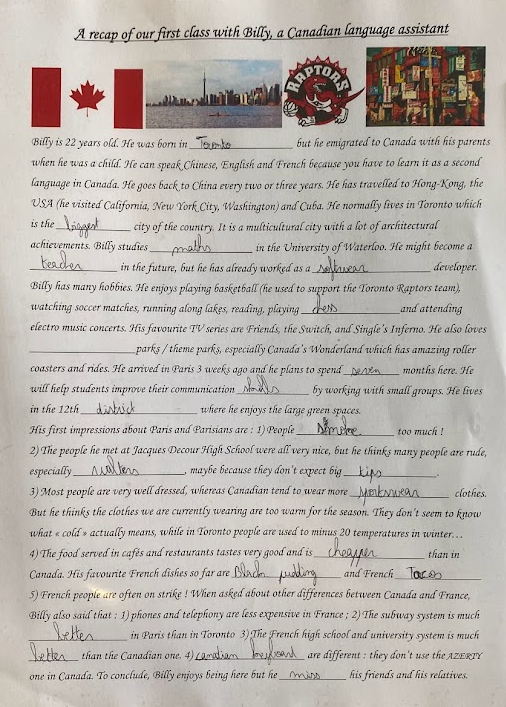 A recap of our first class with Billy, a Canadian language assistant
RAPTORS
Billy is 22 years old. He was born in Toronto but he emigrated to Canada with his parents
when he was a child. He can speak Chinese, English and French because you have to learn it as a second
language in Canada. He goes back to China every two or three years. He has travelled to Hong-Kong, the
USA (he visited California, New York City, Washington) and Cuba. He normally lives in Toronto which
is the biggest city of the country. It is a multicultural city with a lot of architectural
achievements. Billy studies maths in the University of Waterloo. He might become a
teacher in the future, but he has already worked as a softwear developer.
Billy has many hobbies. He enjoys playing basketball (he used to support the Toronto Raptors team),
watching soccer matches, running along lakes, reading, playing chess and attending
electro music concerts. His favourite TV series are Friends, the Switch, and Single's Inferno. He also loves
parks / theme parks, especially Canada's Wonderland which has amazing roller
coasters and rides. He arrived in Paris 3 weeks ago and he plans to spend seven months here. He
will help students improve their communication skills by working with small groups. He lives
in the 12th district where he enjoys the large green spaces.
His first impressions about Paris and Parisians are : 1) People smoke too much !
2) The people he met at Jacques Decour High School were all very nice, but he thinks many people are rude,
especially waiters, maybe because they don't expect big tips.
3) Most people are very well dressed, whereas Canadian tend to wear more sportswear clothes.
But he thinks the clothes we are currently wearing are too warm for the season. They don't seem to know
what « cold » actually means, while in Toronto people are used to minus 20 temperatures in winter…
4) The food served in cafés and restaurants tastes very good and is cheaper than in
Canada. His favourite French dishes so far are Black pudding and French Tacos
5) French people are often on strike ! When asked about other differences between Canada and France,
Billy also said that : 1) phones and telephony are less expensive in France ; 2) The subway system is much
better in Paris than in Toronto 3) The French high school and university system is much
better than the Canadian one. 4) canadian keyboard are different : they don't use the AZERTY
one in Canada. To conclude, Billy enjoys being here but he miss his friends and his relatives.